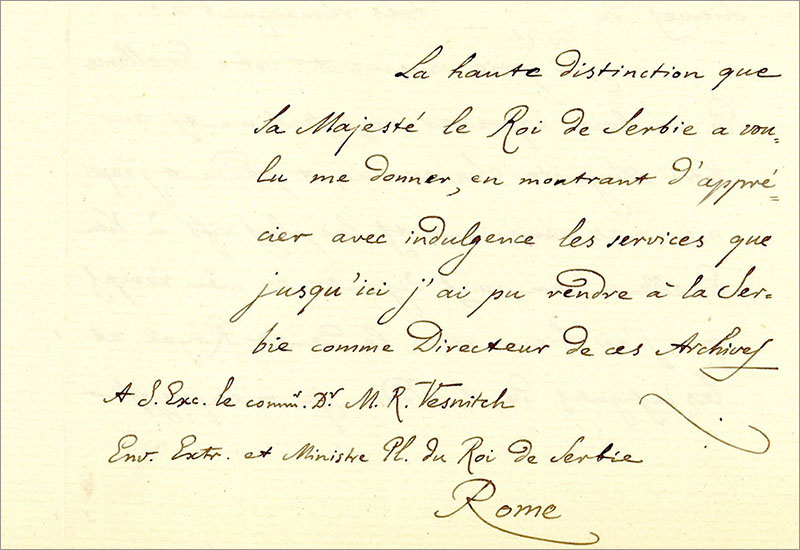 La haute distinction que
Sa Majesté le Roi de Serbie a vou-
lu me donner, en montrant d'appré-
cier avec indulgence les services que
jusqu'ici j'ai pu rendre à la Ser-
bie comme Directeur de ces Archives
A S. Exc. le comm. Dr M. R. Vesnitch
Env. Extr. et Ministre Pl. du Roi de Serbie
Rome